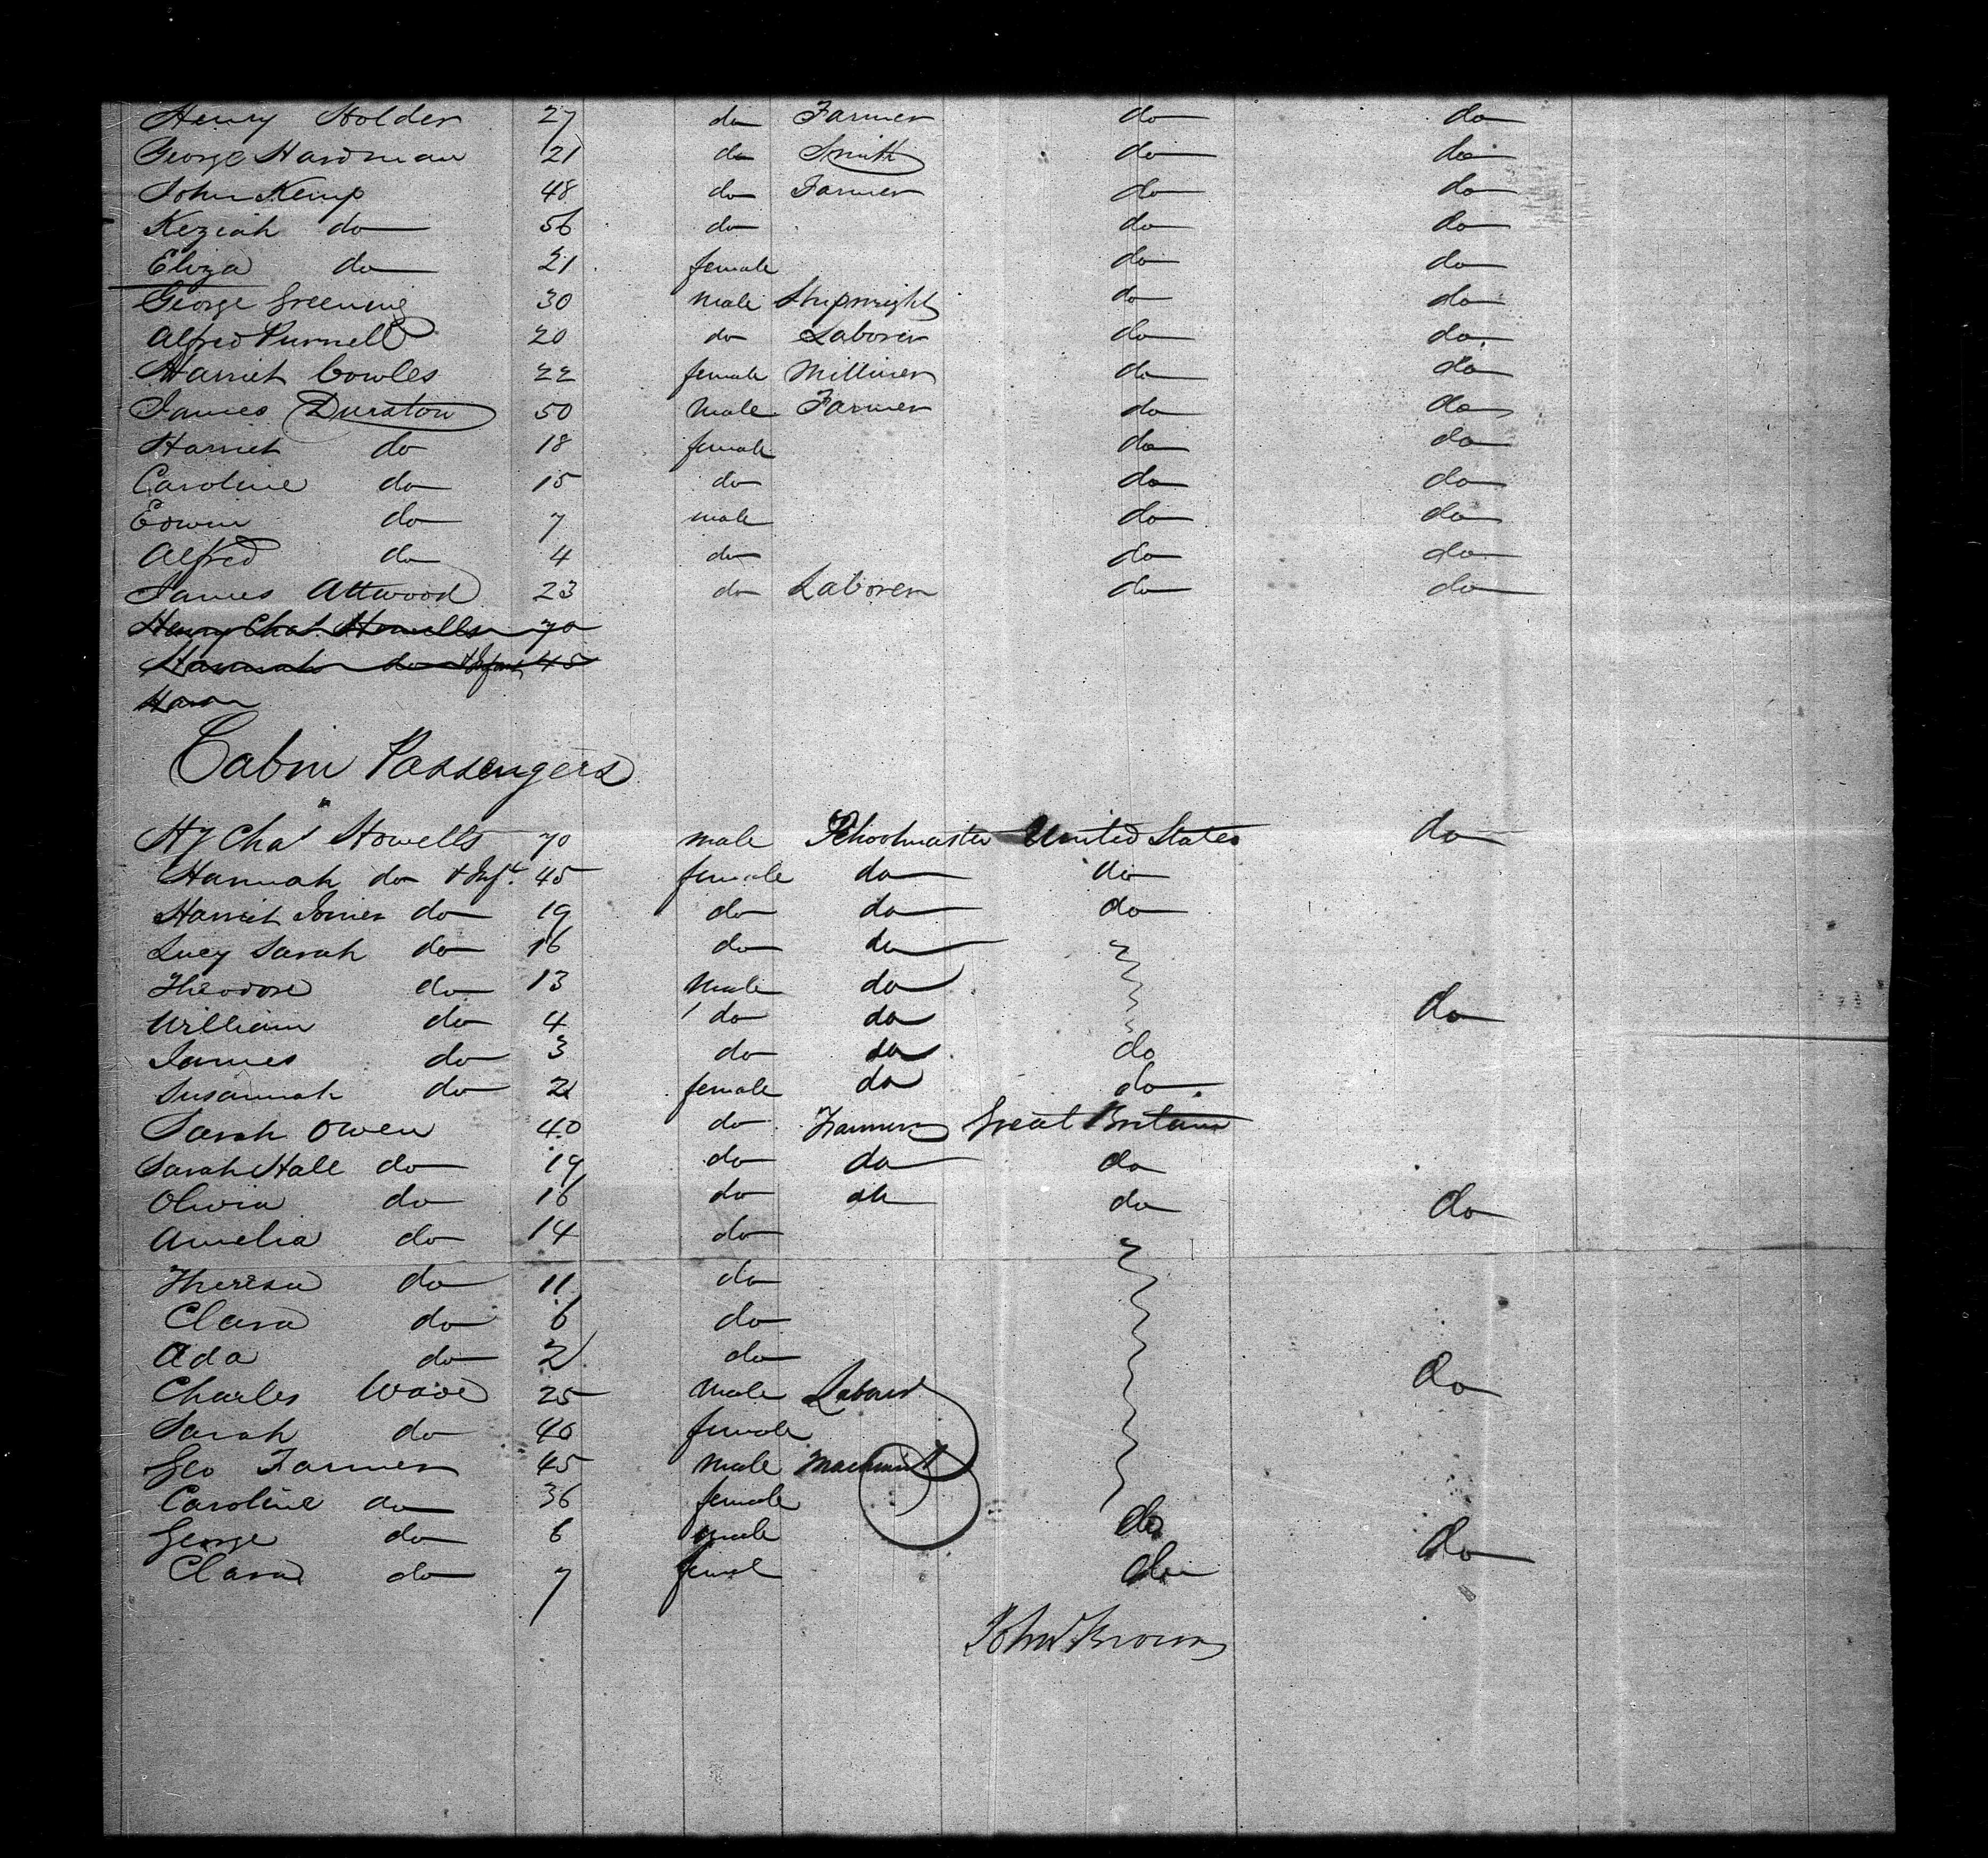 Henry Holder 27 do Farmer do do
George Hardman 21 do Smith do do
John Kemp 48 do Farmer do do
Keziah do 56 do do do
Eliza do 21 female do do
George Greening 30 male Shipwright do do
Alfred Purnell 20 do Laborer do do
Harriet Cowles 22 female Milliner do do
James Durston 50 Male Farmer do do
Harriet do 18 female do do
Caroline do 15 do do do
Edwin do 7 male do do
Alfred do 4 do do do
James Attwood 23 do Laborer do do
Henry Chas. Howells 70
Hannah do & Infant 45
Cabin Passengers
Hy Chas Howells 70 male Schoolmaster United States do
Hannah do & Inft. 45 female do do
Harriet do 19 do do do
Lucy Sarah do 16 do do
Theodore do 13 Male do
William do 4 do do do
James do 3 do do do
Susannah do 2 female do do
Sarah Owen 40 do Farmer Great Britain
Sarah Hall do 19 do do do
Olivia do 16 do do do do
Amelia do 14 do
Theresa do 11 do
Clara do 6 do
Ada do 2 do
Charles Wade 25 Male Laborer do
Sarah do 40 female
Geo Farmer 45 Male Machinist
Caroline do 36 female
George do 6 male do do
Clara do 7 femal do
John Brown